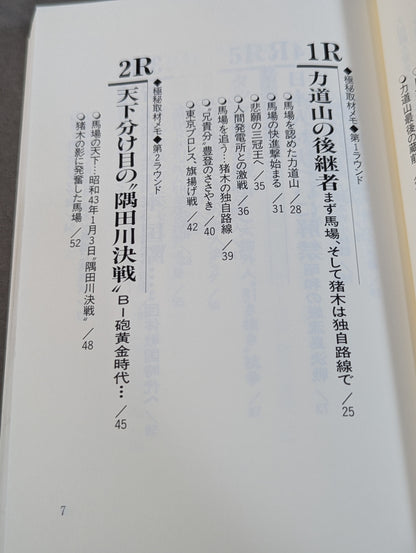 力道山最後の蔵前
◆極秘取材メモ◆第1ラウンド
1R 力道山の後継者 まず馬場、そして猪木は独自路線で/25
○馬場を認めた力道山/28
○馬場の快進撃始まる/31
○悲願の三冠王へ/35
○人間発電所との激戦/36
○馬場を追う…猪木の独自路線/39
○“兄貴分”豊登のささやき/40
○東京プロレス、旗揚げ戦/42
◆極秘取材メモ◆第2ラウンド
2R 天下分け目の“隅田川決戦” BI砲黄金時代…/45
○馬場の天下…昭和43年1月3日“隅田川決戦”/48
○猪木の影に発奮した馬場/52
7